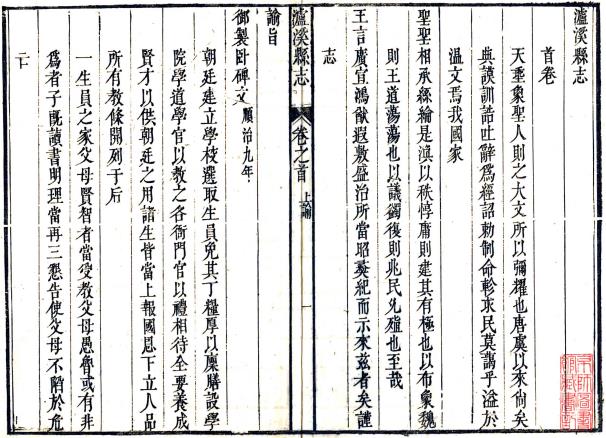 瀘溪縣志
首卷
天垂象聖人則之大文所以彌耀也唐虞以來尚矣
典謨訓誥吐辭爲經詔勅制命軫求民莫讜乎溢於
温文焉我國家
聖聖相承綸是以秩惇庸則建其有極也以布象魏
則王道蕩蕩也以議蠲復則兆民允殖也至哉
王言廣宣鴻猷遐敷盛治所當昭奕紀而示來兹者矣謹
志
瀘溪縣志 卷之首 上諭 一
諭旨
御製卧碑文 順治九年
朝廷建立學校選取生員免其丁糧厚以廩膳設學
院學道學官以教之各衙門官以禮相待全要養成
賢才以供朝廷之用諸生皆當上報國恩下立人品
所有教條開列于后
一生員之家父母賢智者當受教父母愚魯或有非
爲者子既讀書明理當再三懇告使父母不陷於危